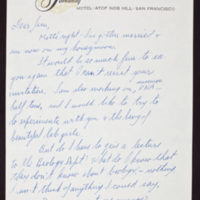 MOTEL · ATOP NOB HILL · SAN FRANCISCO
Dear Jim,
That's right. I've gotten married &
am now on my honeymoon.
It would be so much fun to see
you again that I can't resist your
invitation. I am also working on
half time, and I would like to try to
do experiments with you & the king of
beautiful lab girls.
But do I have to give a lecture
to the Biology Dept? What do I know that
they don't know about Biology - nothing
I can't think of anything I could say,